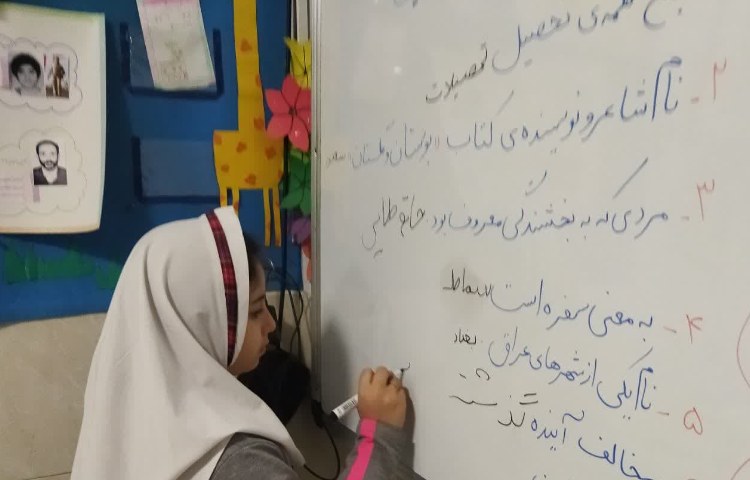 جمع کلمه‌ی تحصیل تحصیلات
۲- نام شاعر و نویسنده‌ی کتاب «بوستان و گلستان»
۳- مردی که به بخشندگی معروف بود حاتم طایی
۴- به معنی سفره است سماط
۵- نام یکی از شهرهای عراق بغداد
مخالف آینده گذشته